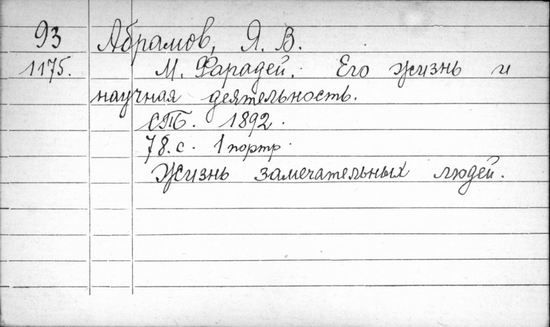 93 Абрамов, Я. В.
1175. М. Фарадей. Его жизнь и
научная деятельность.
СПБ. 1892.
78 с. 1 портр.
Жизнь замечательных людей.